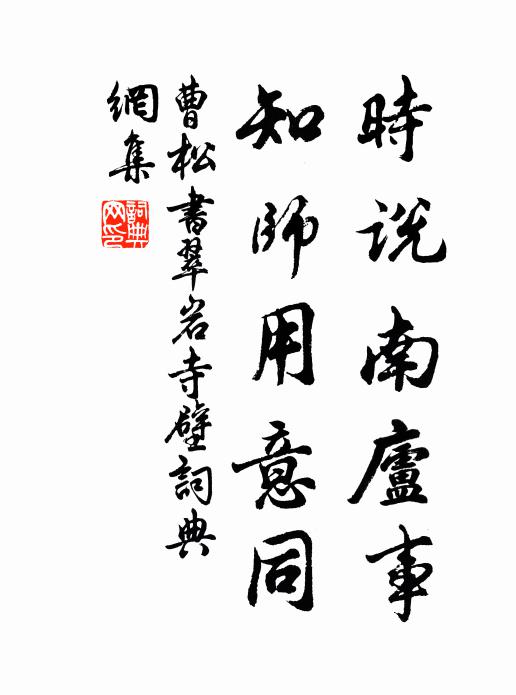 時說南廬事
知師用意同
曹松書翠岩寺壁詞典
網集
詞典網印